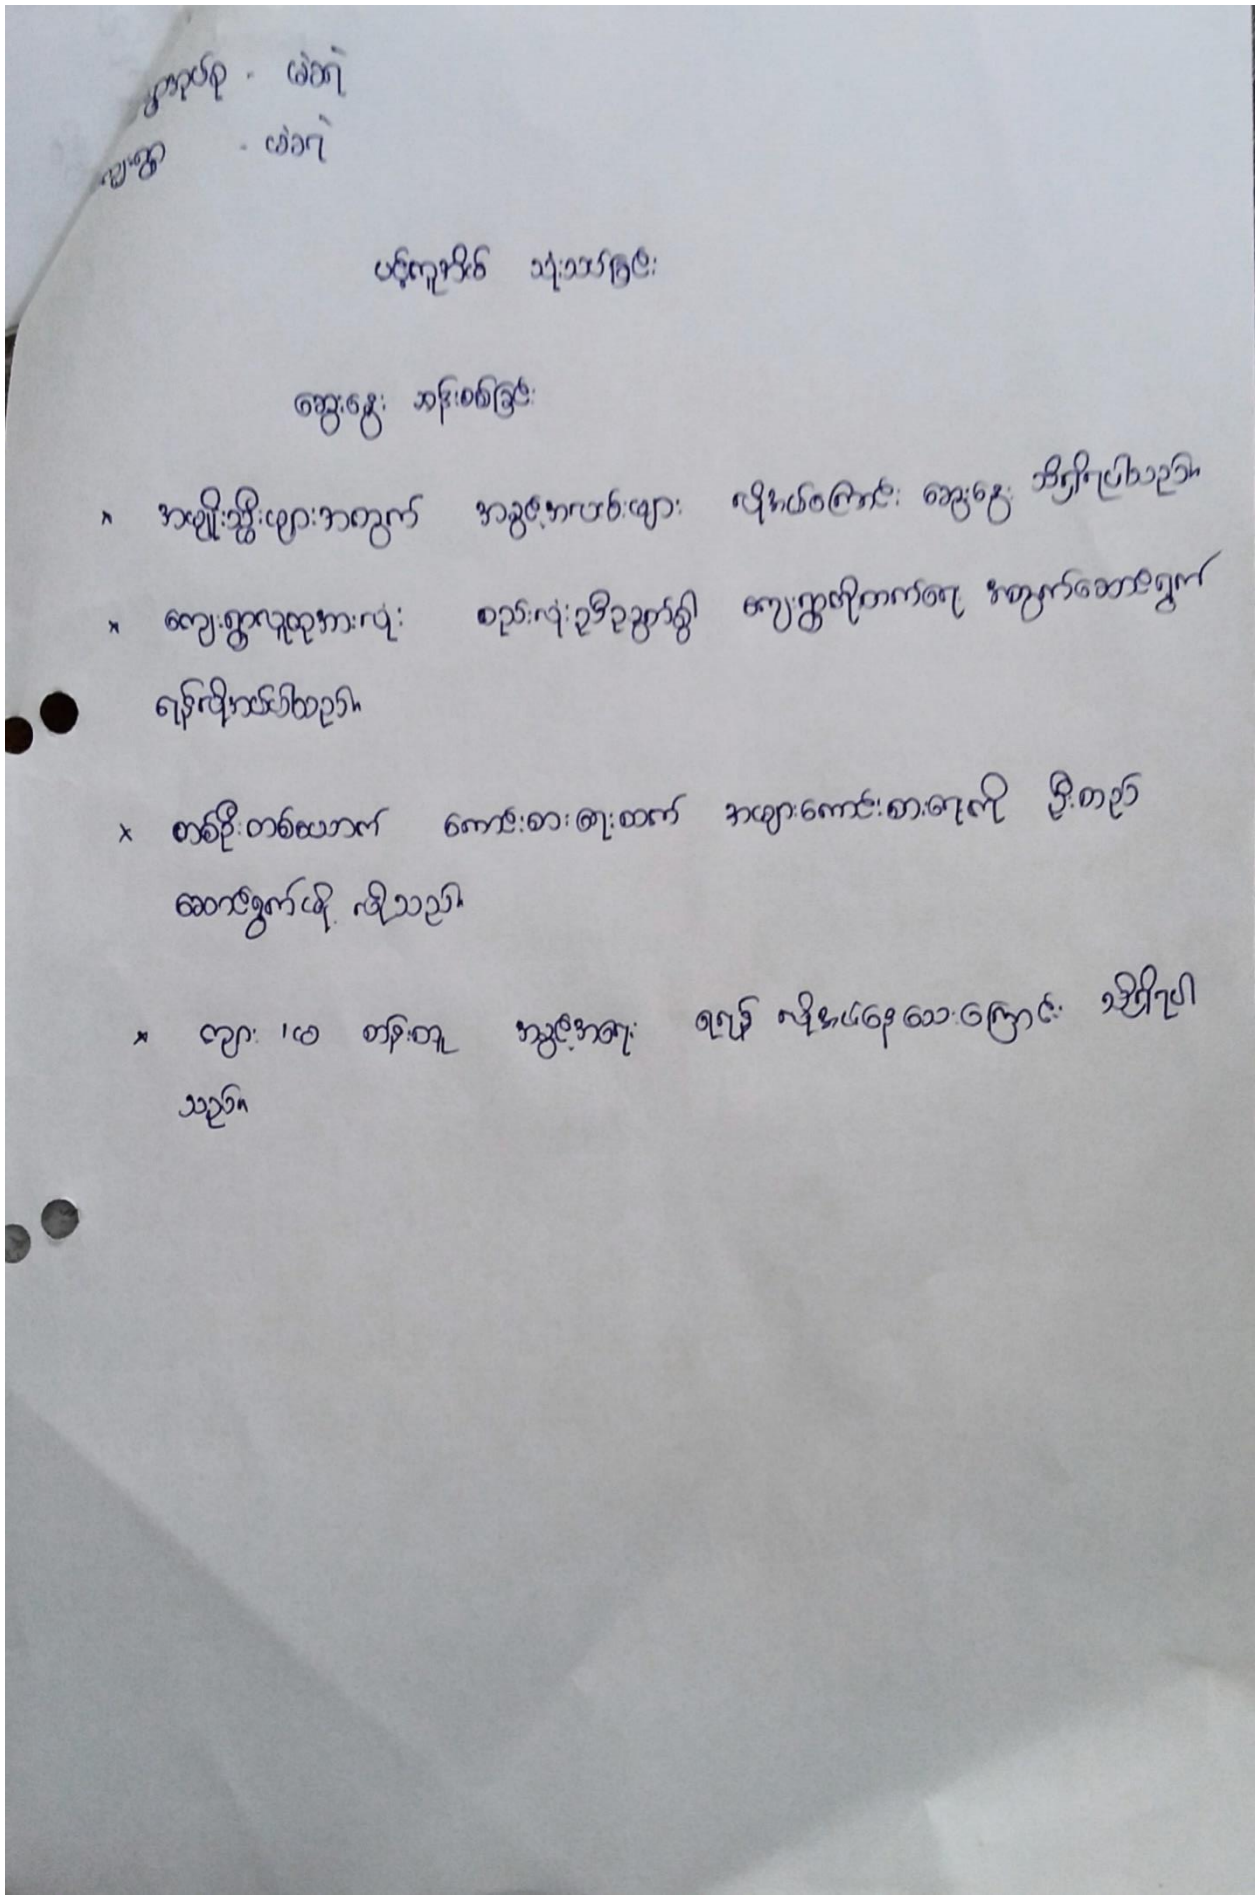 ရွာအုပ်စု - မဲခရဲ
ကျေးရွာ - မဲခရဲ
ပင့်ကူအိမ် သုံးသပ်ခြင်း
ဆွေးနွေး ဆန်းစစ်ခြင်း
× အမျိုးသ္မီးများအတွက် အခွင့်အလမ်းများ လိုအပ်ကြောင်း ဆွေးနွေး သိရှိရပါသည်။
× ကျေးရွာလူထုအားလုံး စည်းလုံးညီညွတ်စွါ ကျေးရွာဖွံ့တက်ရေး အတွက်ဆောင်ရွက်
ရန်လိုအပ်ပါသည်။
× တစ်ဦးတစ်ယောက် ကောင်းစားရေးထက် အများကောင်းစားရေးကို ဦးတည်
ဆောင်ရွက်ဖို့ လိုသည်။
× ကျား ၊ မ တန်းတူ အခွင့်အရေး ရရန် လိုအပ်နေသေးကြောင်း သိရှိရပါ
သည်။